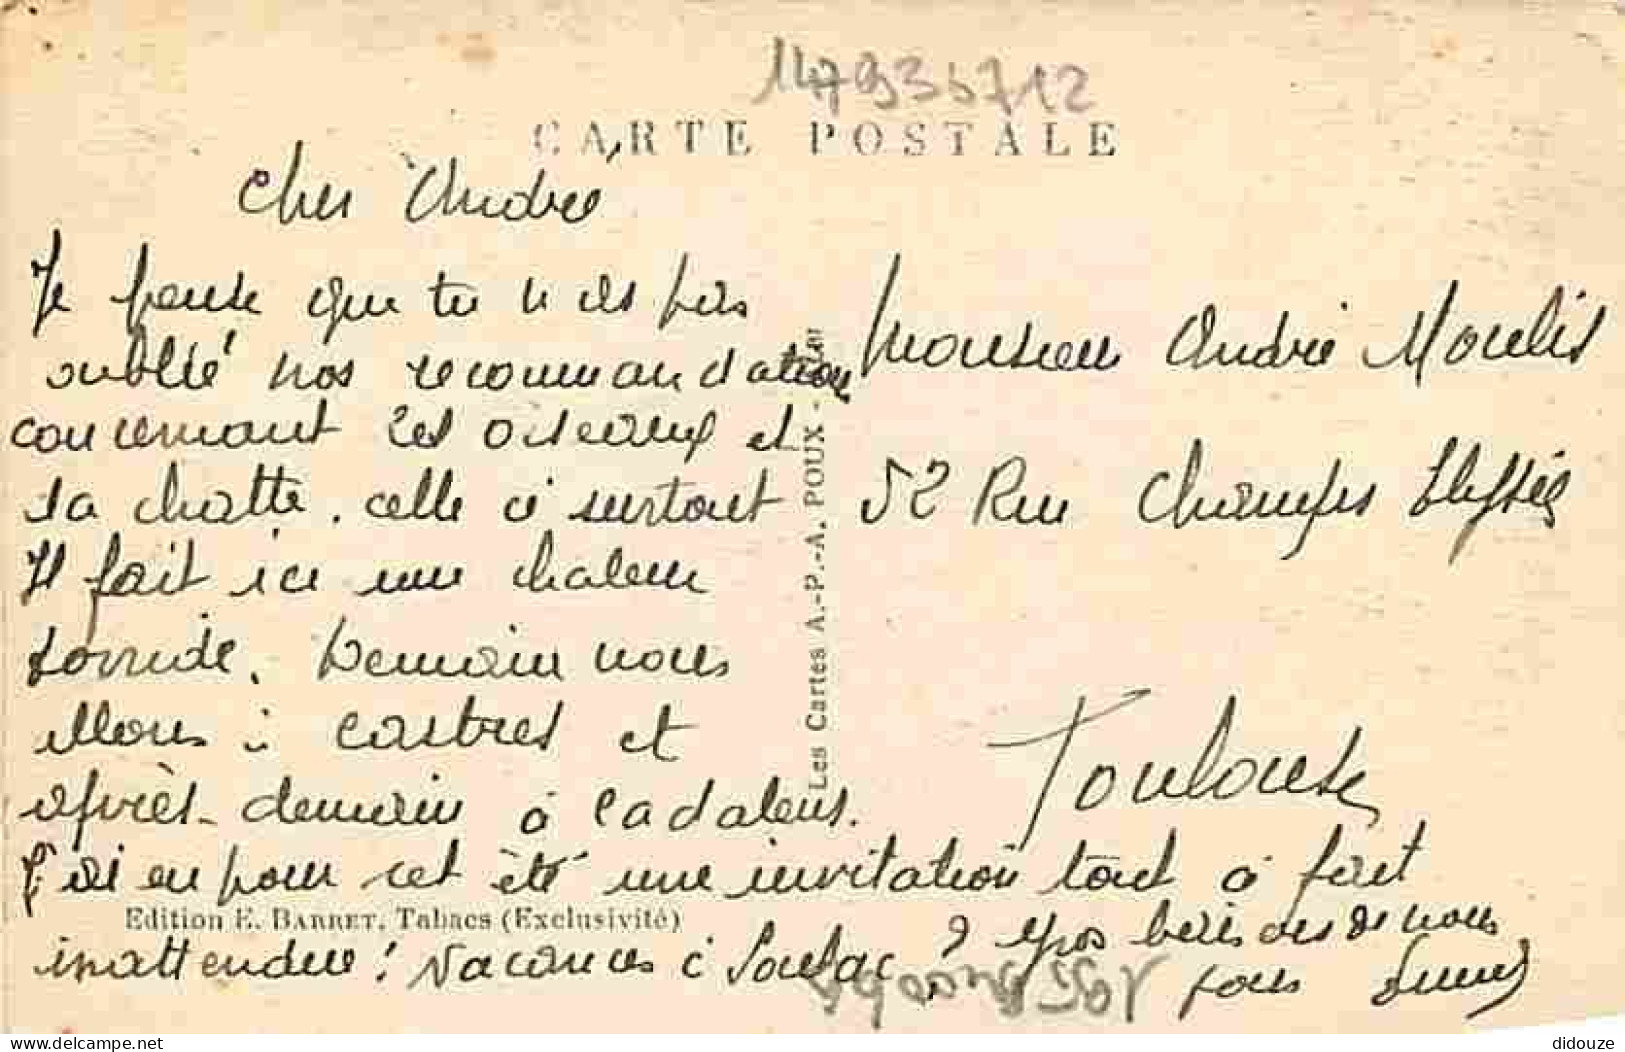 147935712
CARTE POSTALE
Cher André
Je pense que tu n'as pas
oublié nos recommandations
concernant les oiseaux et
la chatte. celle ci surtout
Il fait ici une chaleur
torride. Demain nous
allons à Castres et
après-demain à Cadalens.
J'ai eu pour cet été une invitation tout à fait
inattendue! Vacances à Soulac, Gros baisers de nous
tous
Monsieur André Moulis
52 Rue Champs Elysées
Toulouse
Les Cartes A.-P.-A. POUX -
Edition E. BARRET, Tabacs (Exclusivité)
delcampe.net
didouze